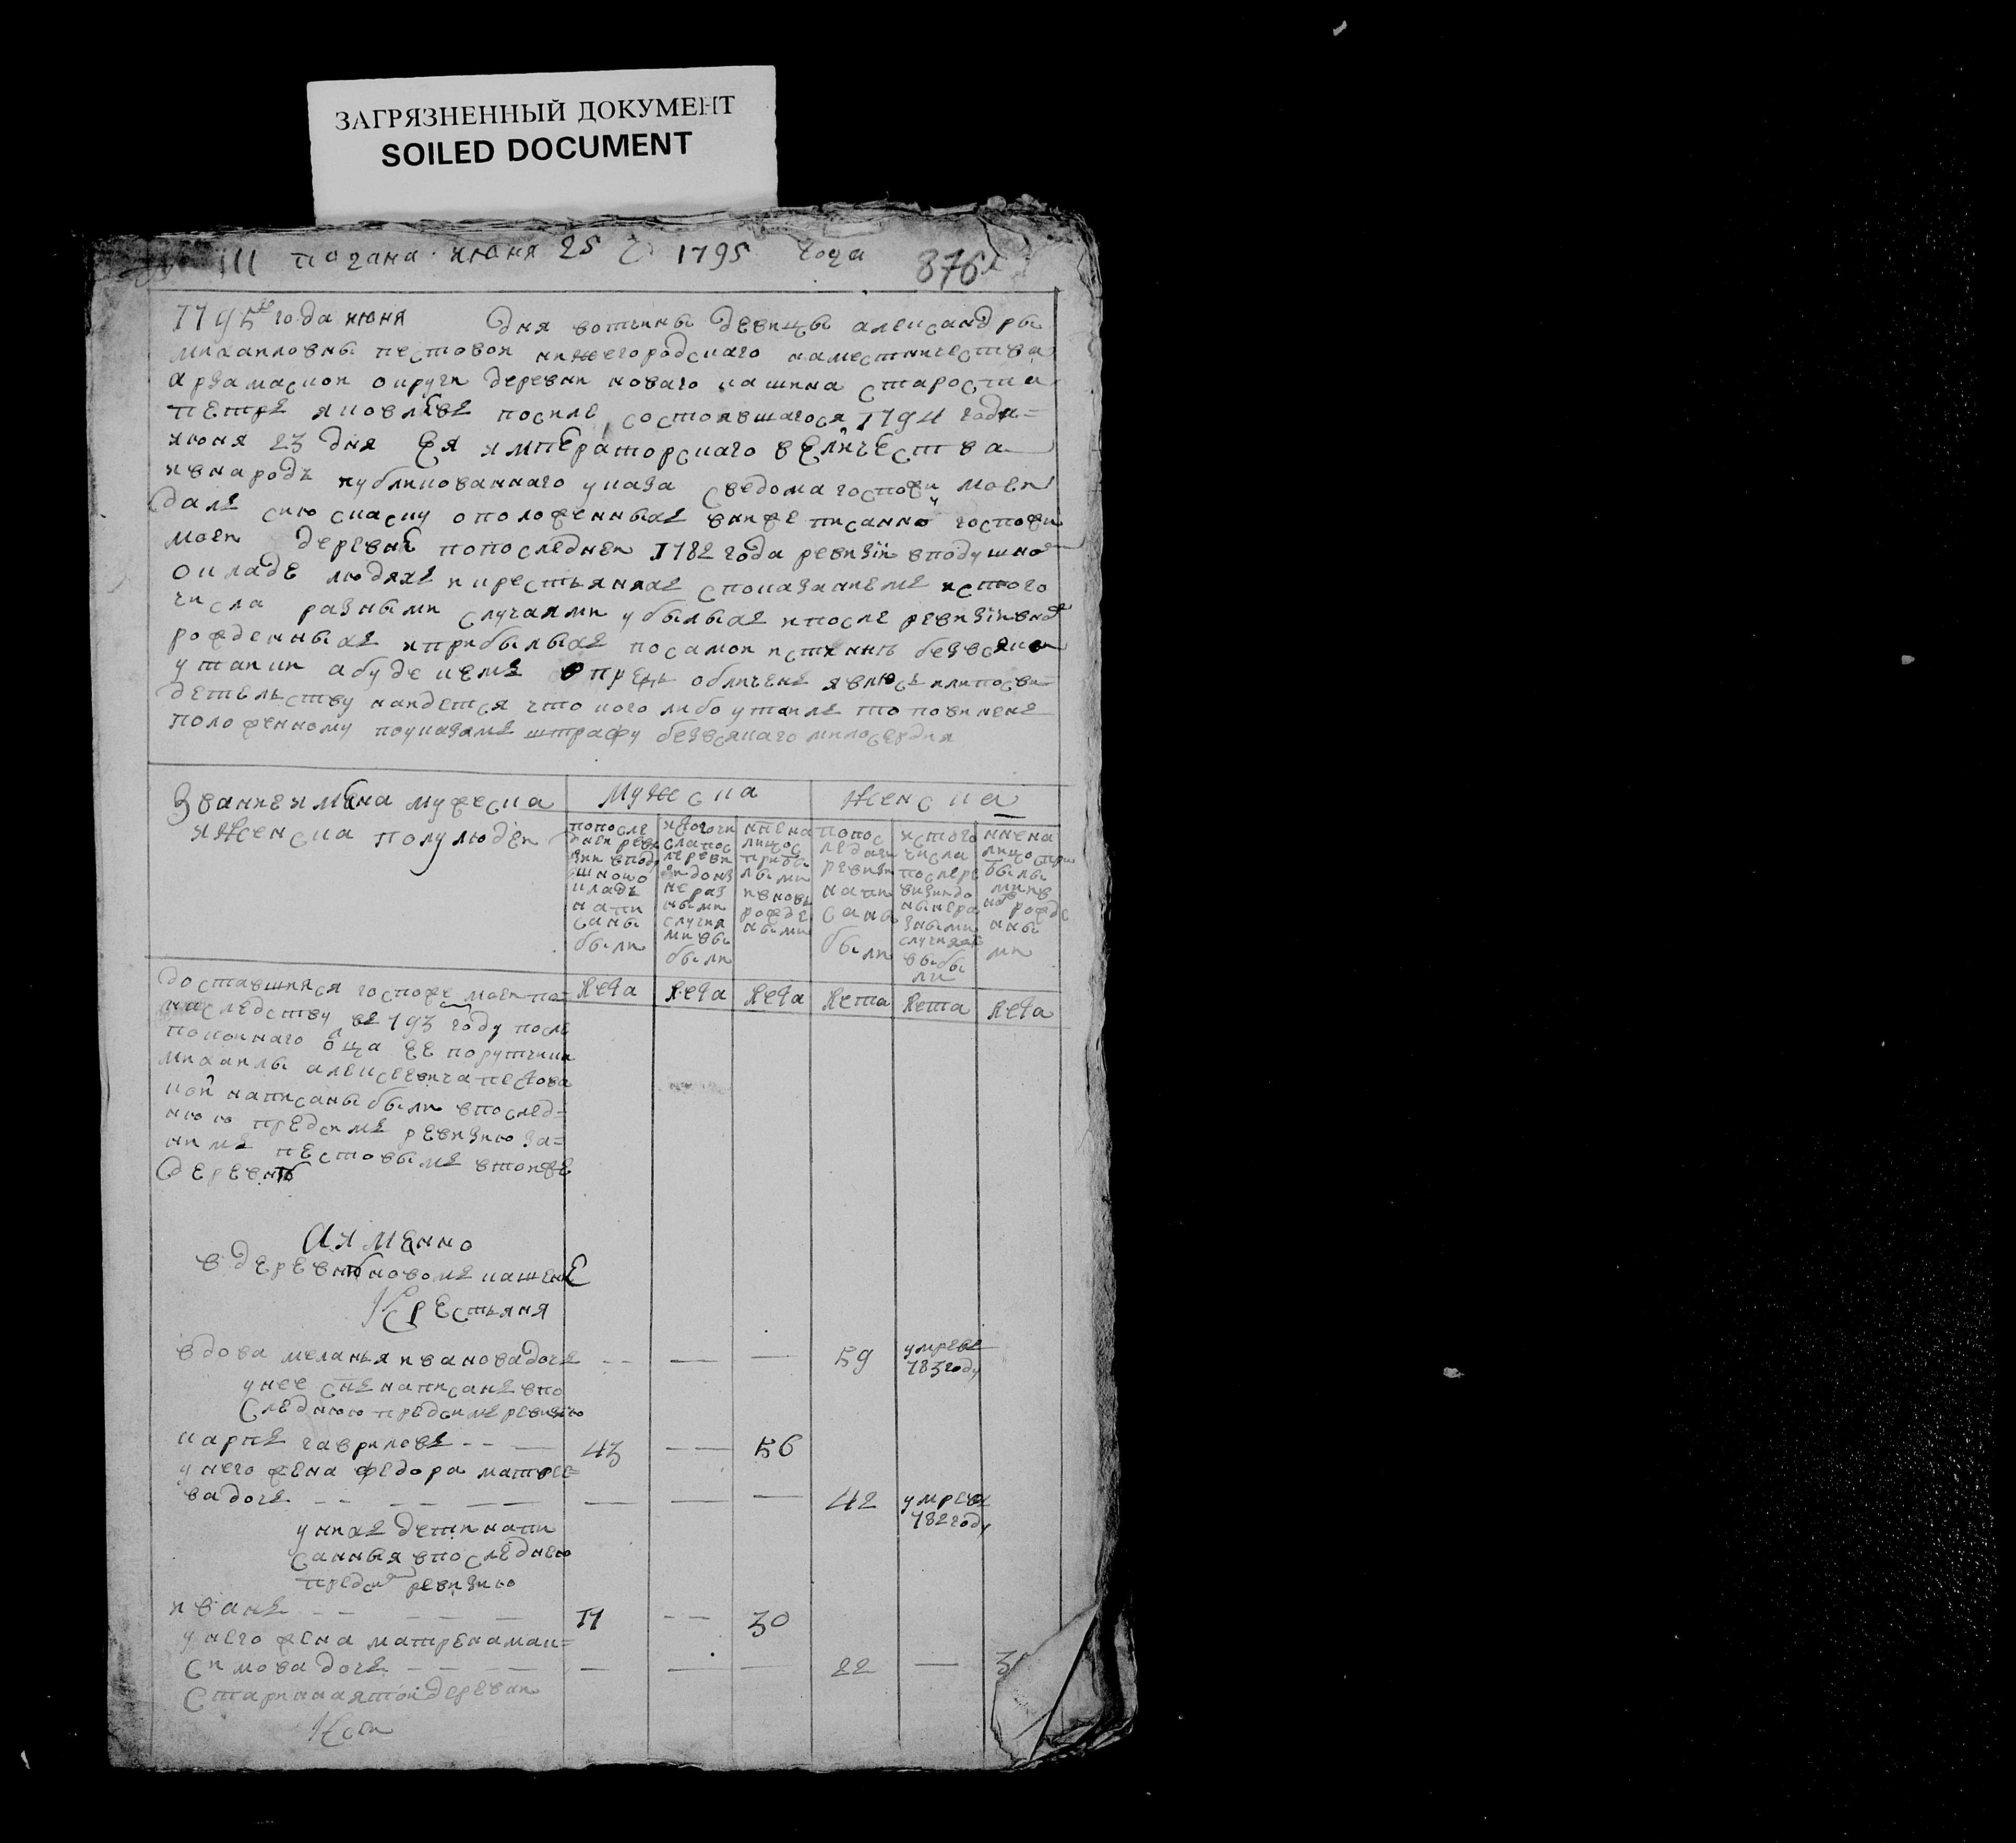 ЗАГРЯЗНЕННЫЙ ДОКУМЕНТ
SOILED DOCUMENT
111 подана июня 25 г 1795 года 876
1795го года июня дня вотчины девицы александры
михаиловны пестовои нижегородскаго наместничества
арзамаскои округи деревни новаго кашина староста
петръ яковлевъ после состоявшагося 1794 года
июня 23 дня Ея императорскаго величества
и внародъ публикованнаго указа сведома госпожи моеи
далъ сию скаску оположенныхъ внижеписанно госпожи
моеи деревне попоследнеи 1782 года ревизiи вподушно
окладе людяхъ и крестьяняхъ споказаниемъ истого
числа разными случаями убылыхъ и после ревизiи вно
рожденныхъ и прибылыхъ посамои истиннѣ безвсяко
утаики абуде кемъ впредь обличенъ явлюсь или посви=
детельству наидется что кого либо утаилъ то повиненъ
положенному поуказамъ штрафу безвсякаго милосердия
Звание имена мужеска
и женска полу людеи
Мужеска
Женска
попосле
днеи реви
зии вподу
шномо
кладѣ
напи
саны
были
истогочи
слапос
леревиз
iидоны
нераз
ными
случая
мивы
были
ннена
лицос
прибы
лыми
ивновь
рожде
ными
попос
ледней
ревизи
напи
саны
были
истого
числа
послере
визиидо
нынера
зными
случаями
выбы
ли
ннена
лицоспри
былы
миив
новрожде
нны
ми
лета
лета
лета
лета
лета
лета
доставшияся госпоже моеи по=
наследству въ 793 году после
покоинаго оца ее порутчика
михаилы алексеевича пестова
кои написаны были впослед=
нюю предсимъ ревизию за=
нимъ пестовымъ втоиже
деревнѣ
А именно
в деревнѣ новомъ кашине
Крестьяня
вдова меланья ивановадочь -- — — 59 умревъ 783году
унее снъ написанъ впо
следнюю предсимъ ревизию
карпъ гавриловъ -- — 43 —— 56
у него жена федора матвее=
ва дочь -- -- —— — — — 42 умревъ 782году
у нихъ дети напи
санныя впоследнею
предсимъ ревизию
иванъ -- —— — 11 —— 30
у него жена матрена мак=
симова дочь — — —— — — — 22 —
Старинная тои деревни